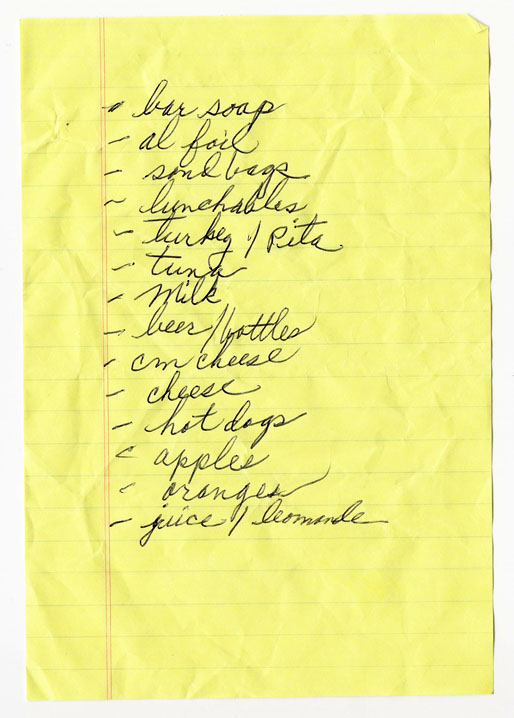 - bar soap
- al foil
- sand bags
- lunchables
- turkey / Pita
- tuna
- Milk
- beer / bottles
- cm cheese
- cheese
- hot dogs
- apples
- oranges
- juice / leomande